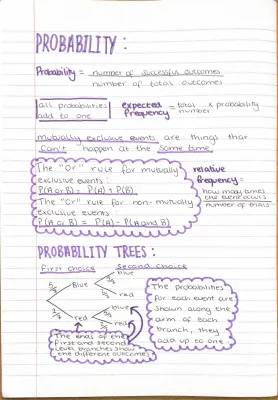 PROBABILITY :
Probability = number of successful outcomes
number of total outcomes
all probabilities
add to one
expected
frequency = total
number x probability
mutually exclusive events are things that
can't happen at the same time
The "Or" rule for mutually
exclusive events:
P(A or B) = P(A) + P(B).
The "Or" rule for non-mutually
exclusive events:
P(A or B) = P(A) - P(A and B)
relative
frequency =
how many times
the event occurs
number of trials
PROBABILITY TREES :
First choice Second choice
blue
blue
red
red
blue
red
The probabilities
for each event are
shown along the
arm of each
branch, they
add up to one
The ends of the
first and second
level branches show
the different outcomes